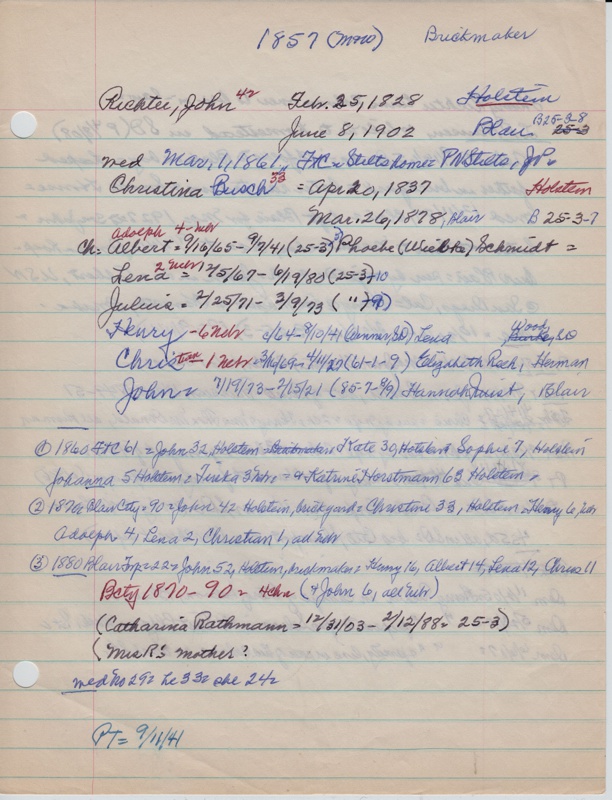 1857 (MNO) Brickmaker
Richter, John 42 Feb. 25, 1828 Holstein
June 8, 1902 Blair B 25-3-8 25-3
med Mar. 1, 1861, FtC = Stelts home = PN Stelts, J.P.
Christina Busch 33 = Apr 20, 1837 Holstein
Mar. 26, 1878, Blair B 25-3-7
adolph 4-Nebr
Ch = Albert = 9/16/65 - 9/7/41 (25-3) Phoebe (Wiebke) Schmidt =
Lena 2 Nebr = 12/5/67 - 6/19/80 (25-3) 10
Julius = 2/25/71 - 3/9/73 ( " ) 9
Henry - 6 Nebr c/64 - 8/10/41 (Winner, SD) Lena
Christian - 1 Nebr = 3/16/69 - 4/4/27 (61-1-9) Elizabeth Rech, Herman
John = 7/19/73 - 2/15/21 (85-7-8/9) Hannah Quist, Blair
① 1860 FtC 61 = John 32, Holstein Brickmaker, Kate 30, Holstein Sophie 7, Holstein
Johanna 5 Holstein = 3 Nebr. = 4 Katrine Horstmann 63 Holstein,
② 1870 = Blair Cty = 90 = John 42 Holstein, brickyard = Christine 33, Holstein = Henry 6,
Adolph 4, Lena 2, Christian 1, all Nebr
③ 1880 Blair Twp = 22 = John 52, Holstein, brickmaker = Henry 16, Albert 14, Lena 12, Chris 11
Bcty 1870 - 90 = 4 chn (4 John 6, all Nebr)
(Catharina Rathmann = 12/31/03 - 2/12/88 = 25-3)
(Mrs R's mother?
med No 29 = he 33 = she 24 =
PT = 9/11/41